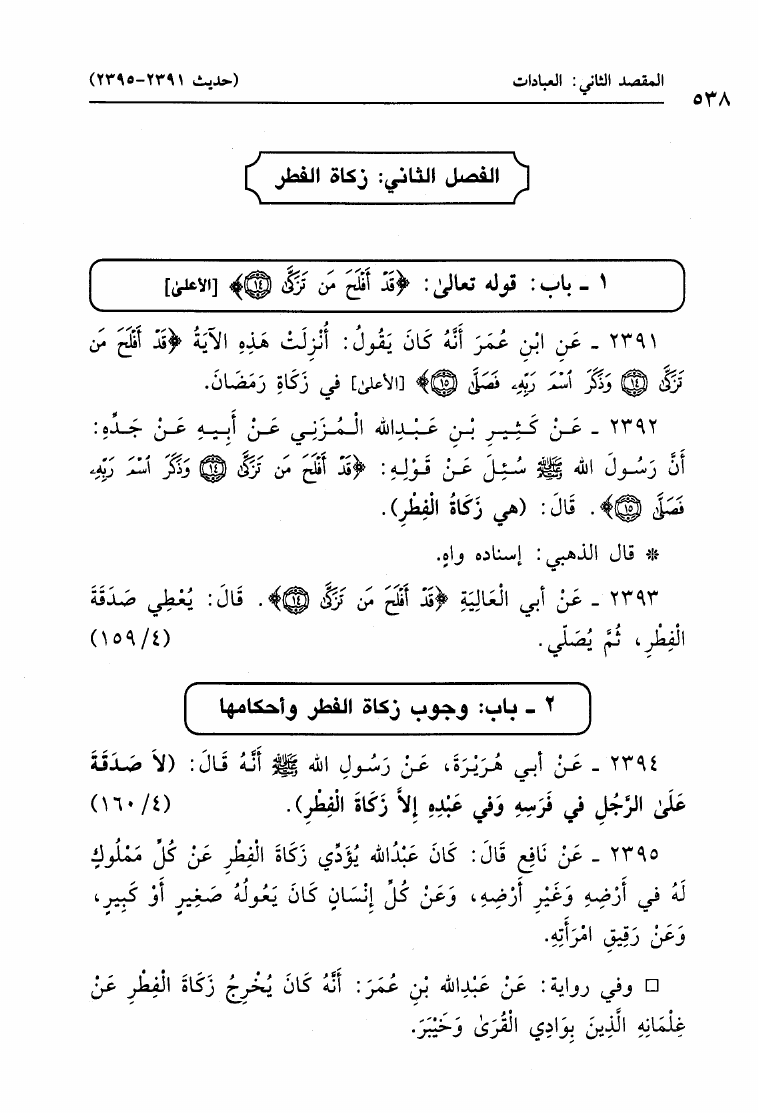 المقصد الثاني: العبادات (حديث ٢٣٩١-٢٣٩٥)
٥٣٨
الفصل الثاني: زكاة الفطر
١ ـ باب: قوله تعالىٰ: ﴿قَدْ أَفْلَحَ مَن تَزَكَّىٰ ١٤﴾ [الأعلىٰ]
٢٣٩١ ـ عَنِ ابْنِ عُمَرَ أَنَّهُ كَانَ يَقُولُ: أُنْزِلَتْ هَذِهِ الآيَةُ ﴿قَدْ أَفْلَحَ مَن
تَزَكَّىٰ ١٤ وَذَكَرَ ٱسْمَ رَبِّهِۦ فَصَلَّىٰ ١٥﴾ [الأعلىٰ] في زَكَاةِ رَمَضَانَ.
٢٣٩٢ ـ عَنْ كَثِيرِ بْنِ عَبْدِالله الْمُزَنِي عَنْ أَبِيهِ عَنْ جَدِّهِ:
أَنَّ رَسُولَ الله ﷺ سُئِلَ عَنْ قَوْلِهِ: ﴿قَدْ أَفْلَحَ مَن تَزَكَّىٰ ١٤ وَذَكَرَ ٱسْمَ رَبِّهِۦ
فَصَلَّىٰ ١٥﴾. قَالَ: (هي زَكَاةُ الْفِطْرِ).
* قال الذهبي: إسناده واهٍ.
٢٣٩٣ ـ عَنْ أبي الْعَالِيَةِ ﴿قَدْ أَفْلَحَ مَن تَزَكَّىٰ ١٤﴾. قَالَ: يُعْطِي صَدَقَةَ
الْفِطْرِ، ثُمَّ يُصَلِّي. (١٥٩/٤)
٢ ـ باب: وجوب زكاة الفطر وأحكامها
٢٣٩٤ ـ عَنْ أبي هُرَيْرَةَ، عَنْ رَسُولِ الله ﷺ أَنَّهُ قَالَ: (لاَ صَدَقَةَ
عَلَىٰ الرَّجُلِ في فَرَسِهِ وَفي عَبْدِهِ إِلاَّ زَكَاةَ الْفِطْرِ). (١٦٠/٤)
٢٣٩٥ ـ عَنْ نَافِعٍ قَالَ: كَانَ عَبْدُالله يُؤَدِّي زَكَاةَ الْفِطْرِ عَنْ كُلِّ مَمْلُوكٍ
لَهُ في أَرْضِهِ وَغَيْرِ أَرْضِهِ، وَعَنْ كُلِّ إِنْسَانٍ كَانَ يَعُولُهُ صَغِيرٍ أَوْ كَبِيرٍ،
وَعَنْ رَقِيقِ امْرَأَتِهِ.
□ وفي رواية: عَنْ عَبْدِالله بْنِ عُمَرَ: أَنَّهُ كَانَ يُخْرِجُ زَكَاةَ الْفِطْرِ عَنْ
غِلْمَانِهِ الَّذِينَ بِوَادِي الْقُرَىٰ وَخَيْبَرَ.